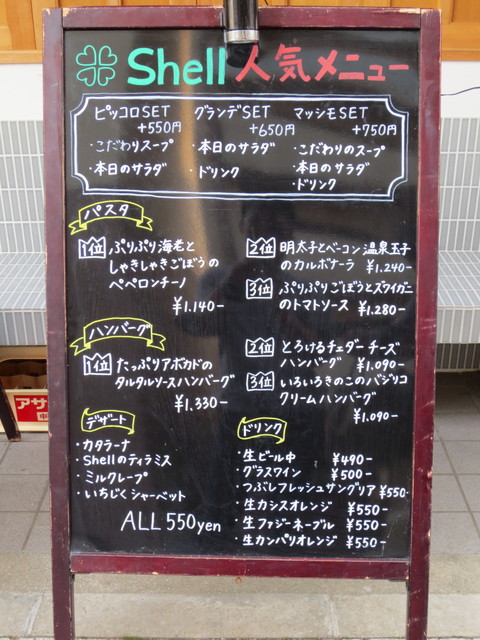 Shell 人気メニュー
ピッコロSET グランデSET マッシモSET
+550円 +650円 +750円
・こだわりスープ ・本日のサラダ ・こだわりのスープ
・本日のサラダ ・ドリンク ・本日のサラダ
・ドリンク
パスタ
1位 ぷりぷり海老と
しゃきしゃきごぼうの
ペペロンチーノ
¥1.140-
2位 明太子とベーコン温泉玉子
のカルボナーラ ¥1.240-
3位 ぷりぷりごぼうとズワイガニ
のトマトソース ¥1.280-
ハンバーグ
1位 たっぷりアボカドの
タルタルソースハンバーグ
¥1.330-
2位 とろけるチェダーチーズ
ハンバーグ ¥1.090-
3位 いろいろきのこのバジリコ
クリームハンバーグ
¥1.090-
デザート
・カタラーナ
・Shellのティラミス
・ミルクレープ
・いちじくシャーベット
ALL 550yen
ドリンク
・生ビール中 ¥490-
・グラスワイン ¥500-
・つぶしフレッシュサングリア ¥550-
・生カシスオレンジ ¥550-
・生ファジーネーブル ¥550-
・生カンパリオレンジ ¥550-
アサ